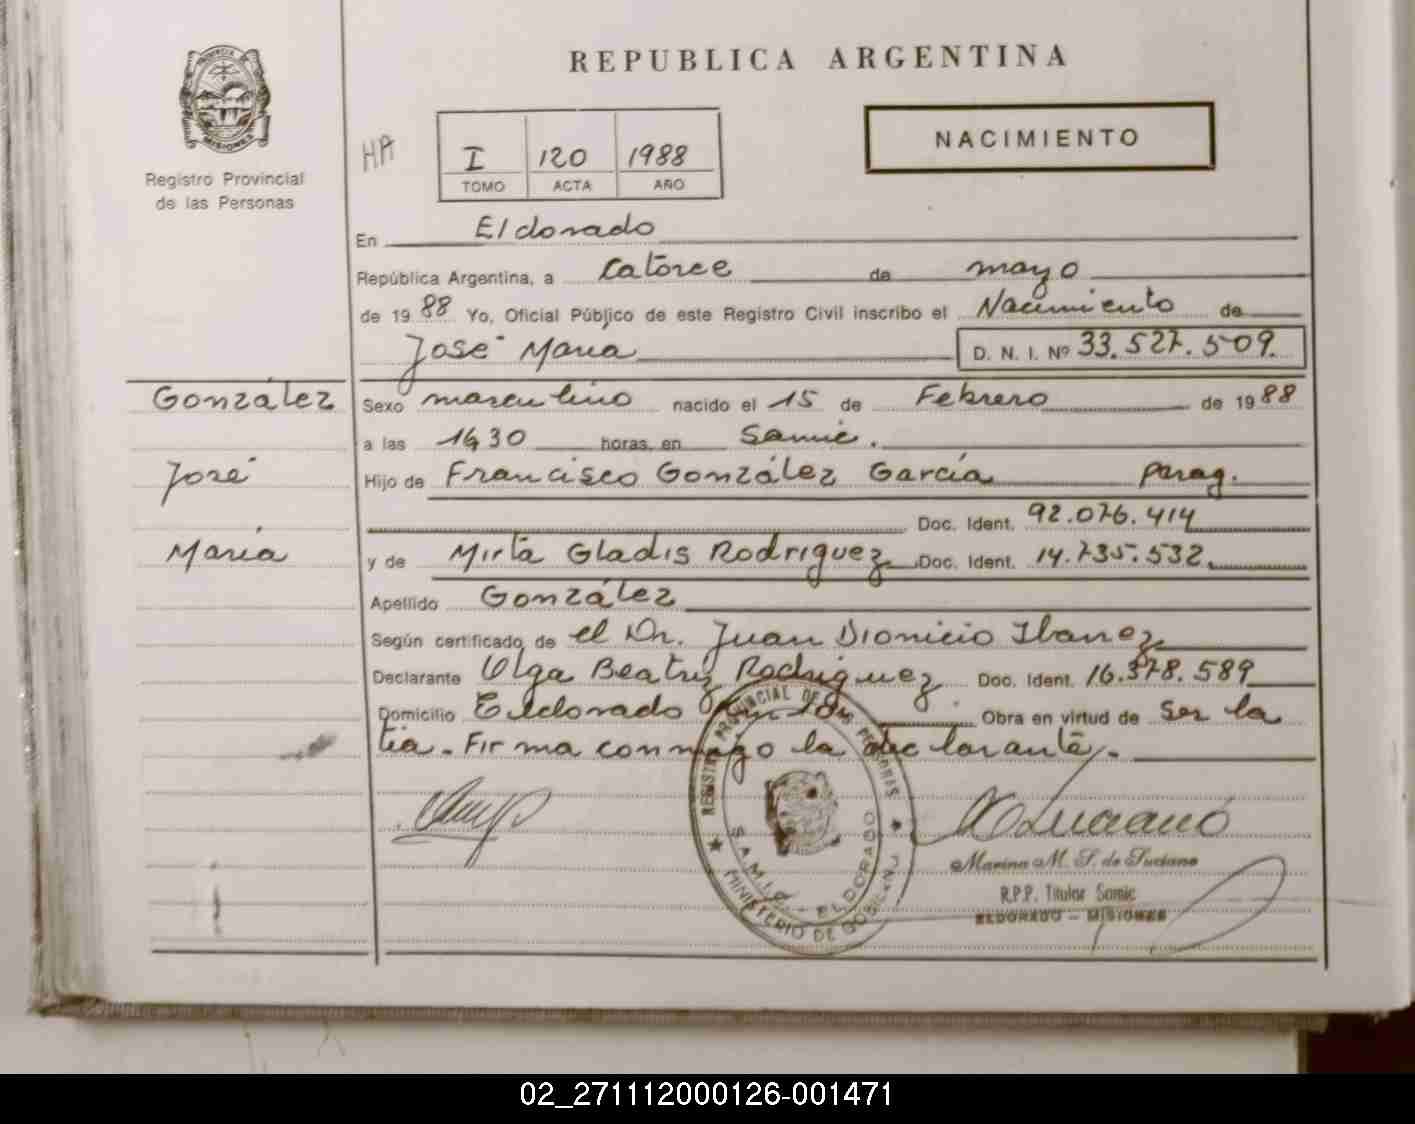 REPUBLICA ARGENTINA
PROVINCIA DE
MISIONES
Registro Provincial
de las Personas
NACIMIENTO
HA
I 120 1988
TOMO ACTA AÑO
En Eldorado
República Argentina, a Catorce de mayo
de 1988 Yo, Oficial Público de este Registro Civil inscribo el Nacimiento de
José Maria D. N. I. Nº 33.527.509.
González
Sexo masculino nacido el 15 de Febrero de 1988
a las 14,30 horas, en Samic.
José
Hijo de Francisco González García parag.
Doc. Ident. 92.076.414
María
y de Mirta Gladis Rodriguez Doc. Ident. 14.735.532
Apellido González
Según certificado de el Dr. Juan Dionicio Ibanez
Declarante Olga Beatriz Rodriguez Doc. Ident. 16.378.589
Domicilio Eldorado Obra en virtud de Ser la
tia. Firma conmigo la declarante.
REGISTRO PROVINCIAL DE LAS PERSONAS
S.A.M.I.C. - ELDORADO
MINISTERIO DE GOBIERNO
Marina M. S. de Luciano
R.P.P. Titular Samic
ELDORADO - MISIONES
02_271112000126-001471